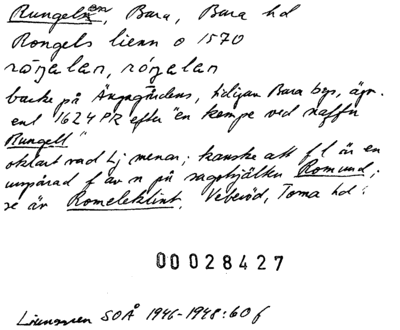 Rungelsen, Bara, Bara hd
Rongels lienn o 1570
backe på Ängagårdens, tidigare Bara bys, ägor.
enl 1624 PR efter "en kempe ved naffn
Rungell"
oklart vad Lj menar; kanske att fl är en
av n på sagohjälten Romund;
se äv Romeleklint, Veberöd, Torna hd.
00028427
Ljunggren SOÅ 1946-1948:60 f